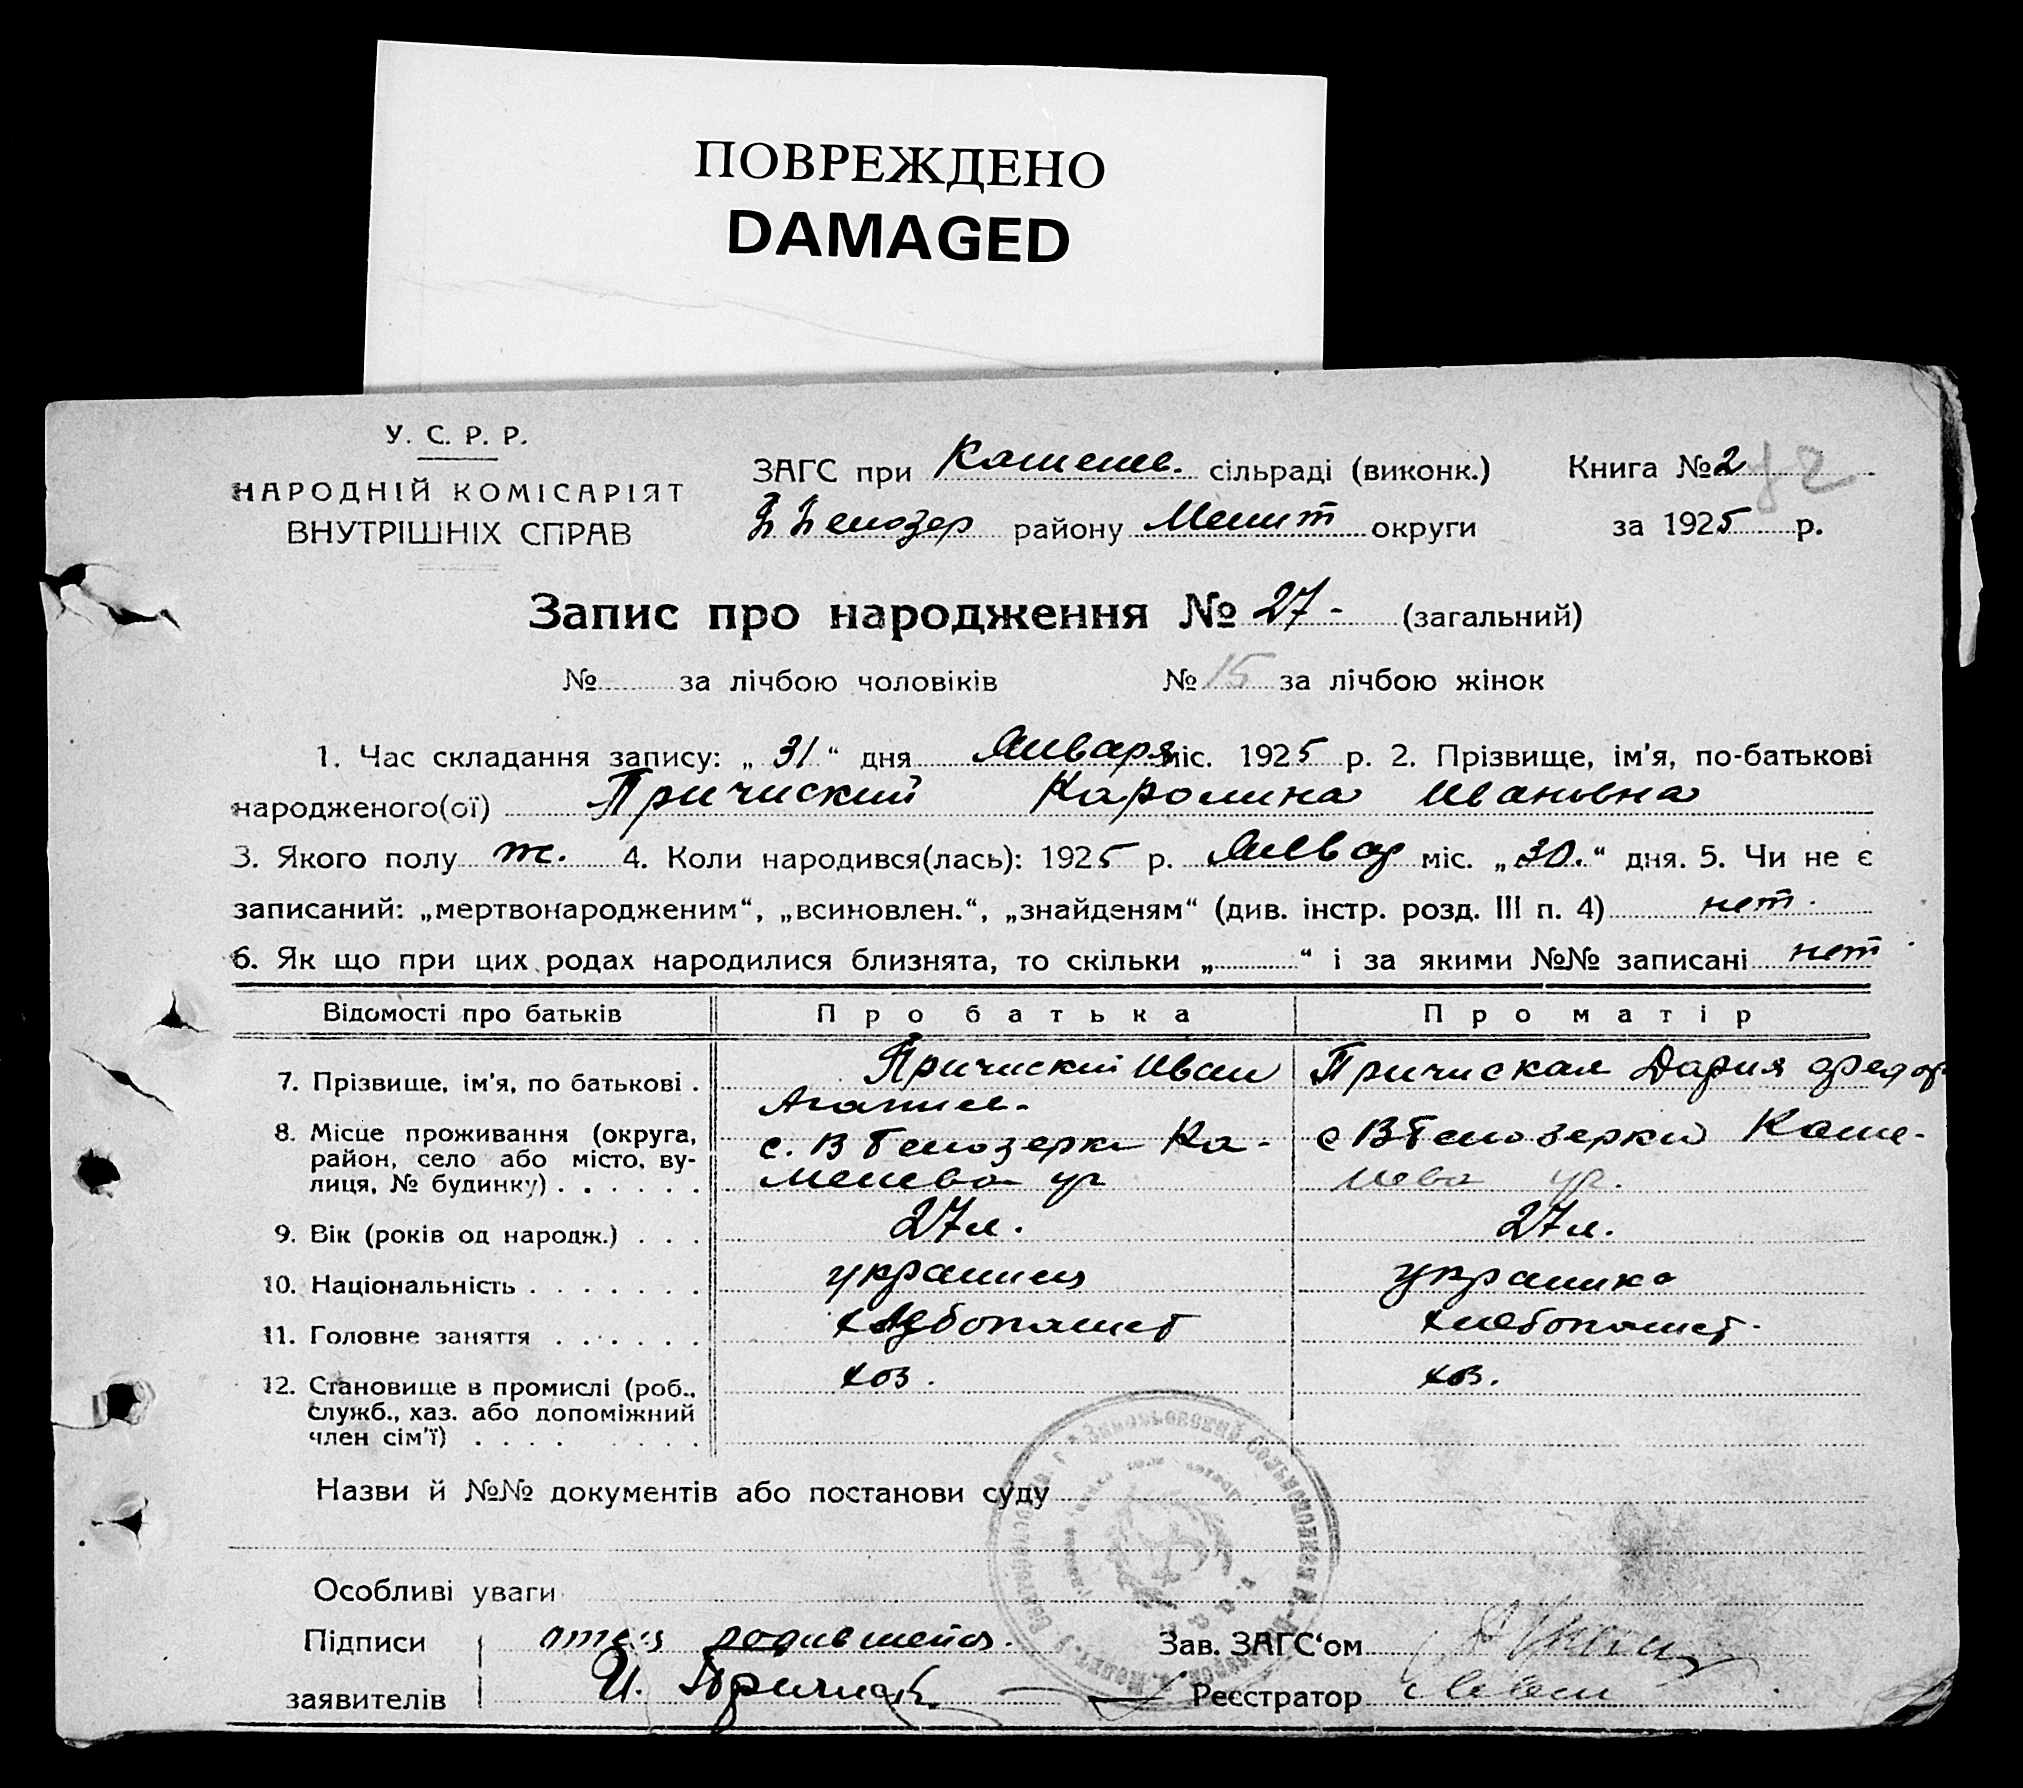 ПОВРЕЖДЕНО
DAMAGED
У. С. Р. Р.
НАРОДНІЙ КОМІСАРІЯТ
ВНУТРІШНІХ СПРАВ
ЗАГС при Каменев. сільраді (виконк.)
району Мелит округи
Книга № 2 82
за 1925 р.
Запис про народження № 27- (загальний)
№ за лічбою чоловіків № 15 за лічбою жінок
1. Час складання запису: „ 31 “ дня Января міс. 1925 р. 2. Прізвище, ім'я, по-батькові
народженого(ої) Причиский Каролина Ивановна
3. Якого полу ж. 4. Коли народився(лась): 1925 р. Январ міс. „ 30. “ дня. 5. Чи не є
записаний: „мертвонародженим“, „всиновлен.“, „знайденям“ (див. інстр. розд. III п. 4) нет.
6. Як що при цих родах народилися близнята, то скільки „ “ і за якими №№ записані нет
Відомості про батьків Про батька Про матір
7. Прізвище, ім'я, по батькові . Причиский Иван Причиская Дария Федор
Агапиев.
8. Місце проживання (округа, с. В Белозерка Ка- с В Белозерки Каме-
район, село або місто, ву-
лиця, № будинку) . . . . . . менева ул нева ул.
9. Вік (років од народж.) . . . 27 л. 27 л.
10. Національність . . . . . . . украинец украинка
11. Головне заняття . . . . . . хлебопашест хлебопашест.
12. Становище в промислі (роб., хоз. хоз.
служб., хаз. або допоміжний
член сім'ї) . . . . . . . .
Назви й №№ документів або постанови суду
Особливі уваги
Підписи отец родившейся. Зав. ЗАГС'ом
заявителів И. Реєстратор